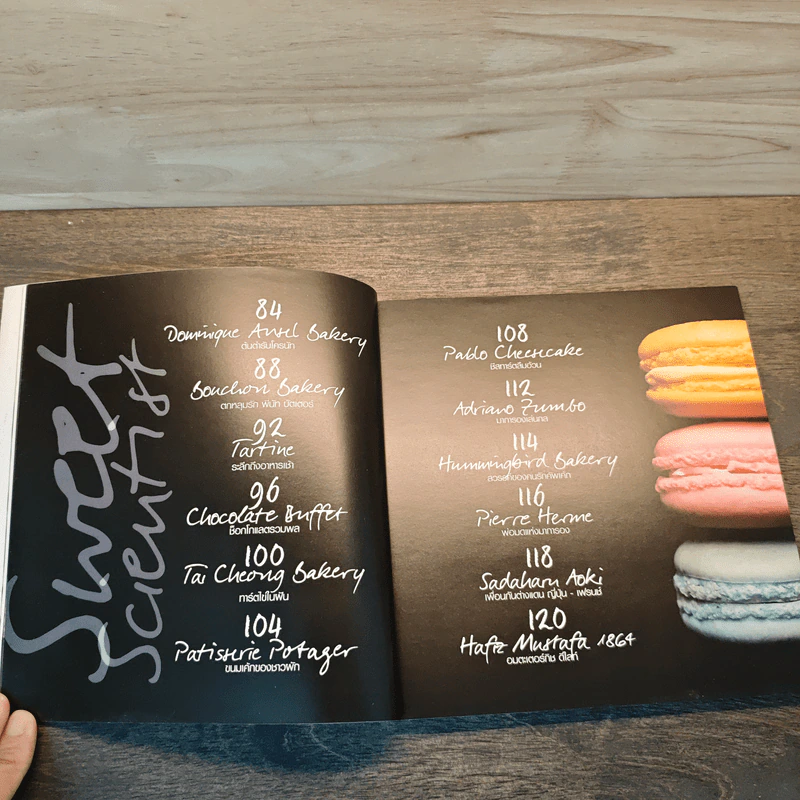 Sweet
Scientist
84
Dominique Ansel Bakery
ต้นตำรับโครนัท
88
Bouchon Bakery
ตกหลุมรัก พีนัท บัตเตอร์
92
Tartine
ระลึกถึงอาหารเช้า
96
Chocolate Buffet
ช็อกโกแลตรวมพล
100
Tai Cheong Bakery
ทาร์ตไข่ในฝัน
104
Patisserie Potager
ขนมเค้กของชาวผัก
108
Pablo Cheesecake
ชีสทาร์ตลืมอ้วน
112
Adriano Zumbo
มาการองเล่นกล
114
Hummingbird Bakery
สวรรค์ของคนรักคัพเค้ก
116
Pierre Herme
พ่อมดแห่งมาการอง
118
Sadaharu Aoki
เพื่อนกันต่างแดน ญี่ปุ่น - เฟรนช์
120
Hafiz Mustafa 1864
อมตะเตอร์กิช ดีไลท์